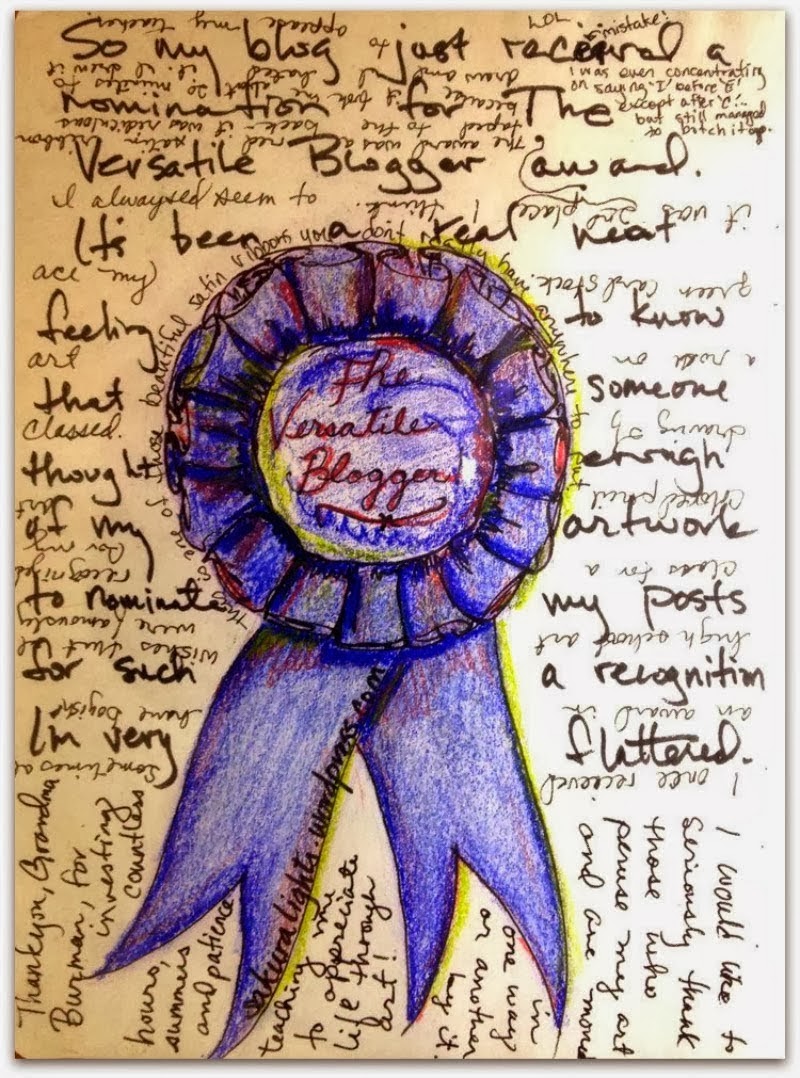 So my blog just received a
nomination for The
Versatile Blogger award.
It's been a real neat
feeling to know
that someone
thought enough
of my artwork
to nominate my posts
for such a recognition
I'm very flattered.
LOL
mistake!
I was even concentrating
on saying, I before 'E'
except after 'C'...
but still managed
to botch it up.
I alwaysed seem to
ace my
art
classed.
The
Versatile
Blogger
sakuralights.wordpress.com
I once recieved
an award in
high school art
class for a
colored pencil
drawing of
a rock on
green card stock.
it was 2nd place I think.
The award was a red satin ribbon
taped to the back - it was rediculous
because it took me about 20 minutes to
draw and I hated it. I drew it
to appease my teacher.
Sometimes
wishes that
were famously
recognized
for my
art
of those beautiful satin ribbons
Thankyou, Grandma
Burman, for
investing
countless
hours,
summers
and patience
teaching me
to appreciate
life through
art!
I would like to
seriously thank
those who
peruse my art
and are moved
in
one way
or another
by it.